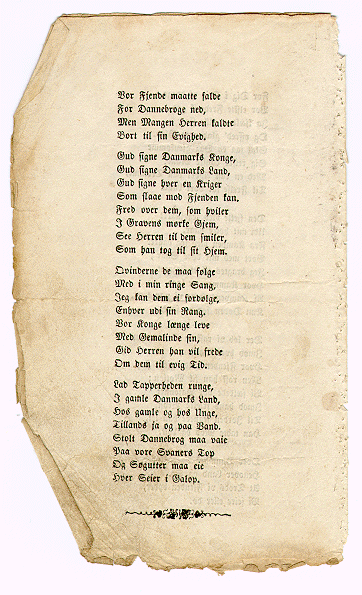 Vor Fjende maatte falde
For Dannebroge ned,
Men Mangen Herren kaldte
Bort til sin Evighed.
Gud signe Danmarks Konge,
Gud signe Danmarks Land,
Gud signe hver en Kriger
Som slaae mod Fjenden kan.
Fred over dem, som hviler
I Gravens mørke Gjem,
See Herren til dem smiler,
Som han tog til sit Hjem.
Qvinderne de maa følge
Med i min ringe Sang,
Jeg kan dem ei fordølge,
Enhver udi sin Rang.
Vor Konge længe leve
Med Gemalinde sin,
Gid Herren han vil frede
Om dem til evig Tid.
Lad Tapperheden runge,
I gamle Danmarks Land,
Hos gamle og hos Unge,
Tillands ja og paa Vand.
Stolt Dannebrog maa vaie
Paa vore Svaners Top
Og Søgutter maa eie
Hver Seier i Galop.